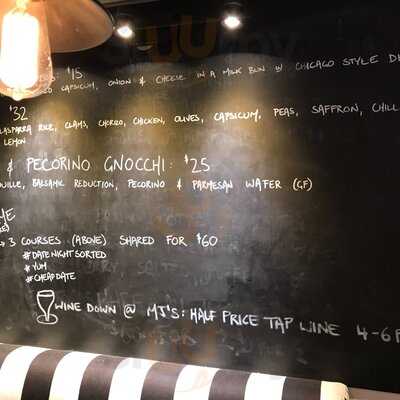 : $15
CAPSICUM, ONION & CHEESE IN A MILK BUN W/ CHICAGO STYLE
$32
LASPARRA RICE, CLAMS, CHORIZO, CHICKEN, OLIVES, CAPSICUM, PEAS, SAFFRON, CHILL
LEMON
& PECORINO GNOCCHI: $25
OUILLE, BALSAMIC REDUCTION, PECORINO & PARMESAN WAFER (GF)
3 COURSES (ABOVE) SHARED FOR $60
#DATENIGHTSORTED
#YUM
#CHEAPDATE
WINE DOWN @ MJ'S: HALF PRICE TAP WINE 4-6P